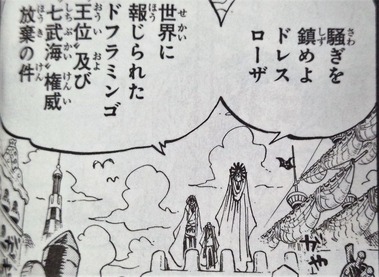 騒ぎを
鎮めよ
ドレス
ローザ
世界に
報じられた
ドフラミンゴ
“王位”及び
“七武海”権威
放棄の件
がや